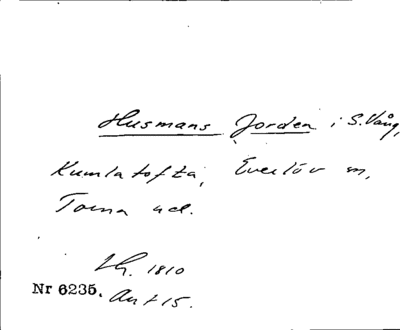 Husmans Jorden i S. Vång,
Kumlatofta, Everlöv m,
Torna
1810
Nr 6235.